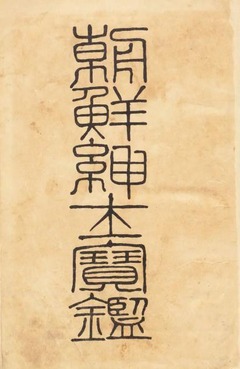 朝鮮紳士寶鑑